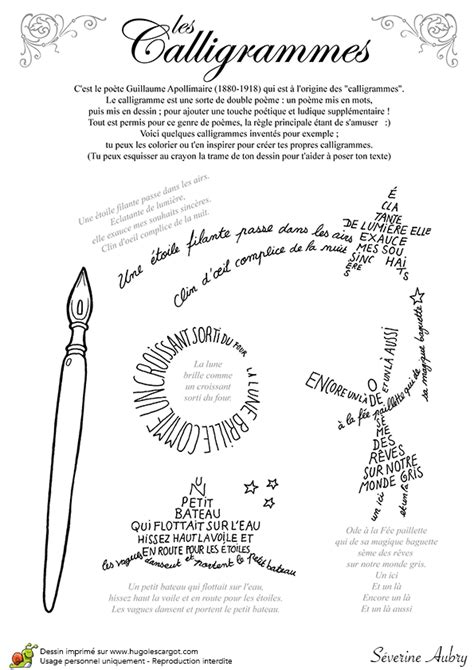 les
Calligrammes
C'est le poète Guillaume Apollimaire (1880-1918) qui est à l'origine des "calligrammes".
Le calligramme est une sorte de double poème : un poème mis en mots,
puis mis en dessin ; pour ajouter une touche poétique et ludique supplémentaire !
Tout est permis pour ce genre de poèmes, la règle principale étant de s'amuser :)
Voici quelques calligrammes inventés pour exemple ;
tu peux les colorier ou t'en inspirer pour créer tes propres calligrammes.
(Tu peux esquisser au crayon la trame de ton dessin pour t'aider à poser ton texte)
Une étoile filante passe dans les airs.
Eclatante de lumière,
elle exauce mes souhaits sincères.
Clin d'oeil complice de la nuit.
Une étoile filante passe dans les airs
É
CLA
TANTE
DE LUMIÈRE ELLE
EXAUCE
MES SOU
HAITS
SINC
ÈRES
Clin d'œil complice de la nuit
LA LUNE BRILLE COMME UN CROISSANT SORTI DU FOUR
La lune
brille comme
un croissant
sorti du four.
ENCORE UN LÀ
O
DE
ET UN LÀ AUSSI
à la fée pailletée qui de
sa magique baguette
SÈ
ME
DES
RÊVES
SUR NOTRE
MONDE GRIS
un ici
et un là
UN
PETIT
BATEAU
QUI FLOTTAIT SUR L'EAU
HISSEZ HAUT LA VOILE ET
EN ROUTE POUR LES ÉTOILES
les vagues dansent et portent le petit bateau
Un petit bateau qui flottait sur l'eau,
hissez haut la voile et en route pour les étoiles.
Les vagues dansent et portent le petit bateau.
Ode à la Fée paillette
qui de sa magique baguette
sème des rêves
sur notre monde gris.
Un ici
Et un là
Encore un là
Et un là aussi
Dessin imprimé sur www.hugolescargot.com
Usage personnel uniquement - Reproduction interdite
Séverine Aubry